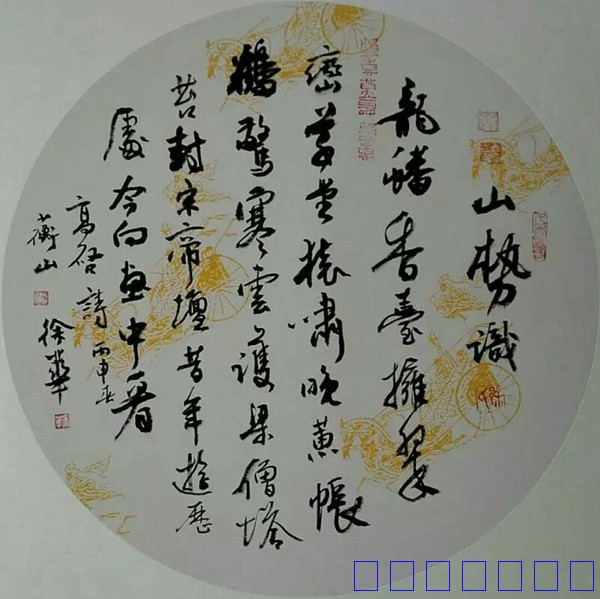 山势識
龍蟠香臺擁翠
峦草堂猿嘯晚蕙帳
鶴驚寒雲護梁僧塔
苔封宋帝壇昔年遊歷
處今向画中看
高啓詩丙申春
蘅山徐華